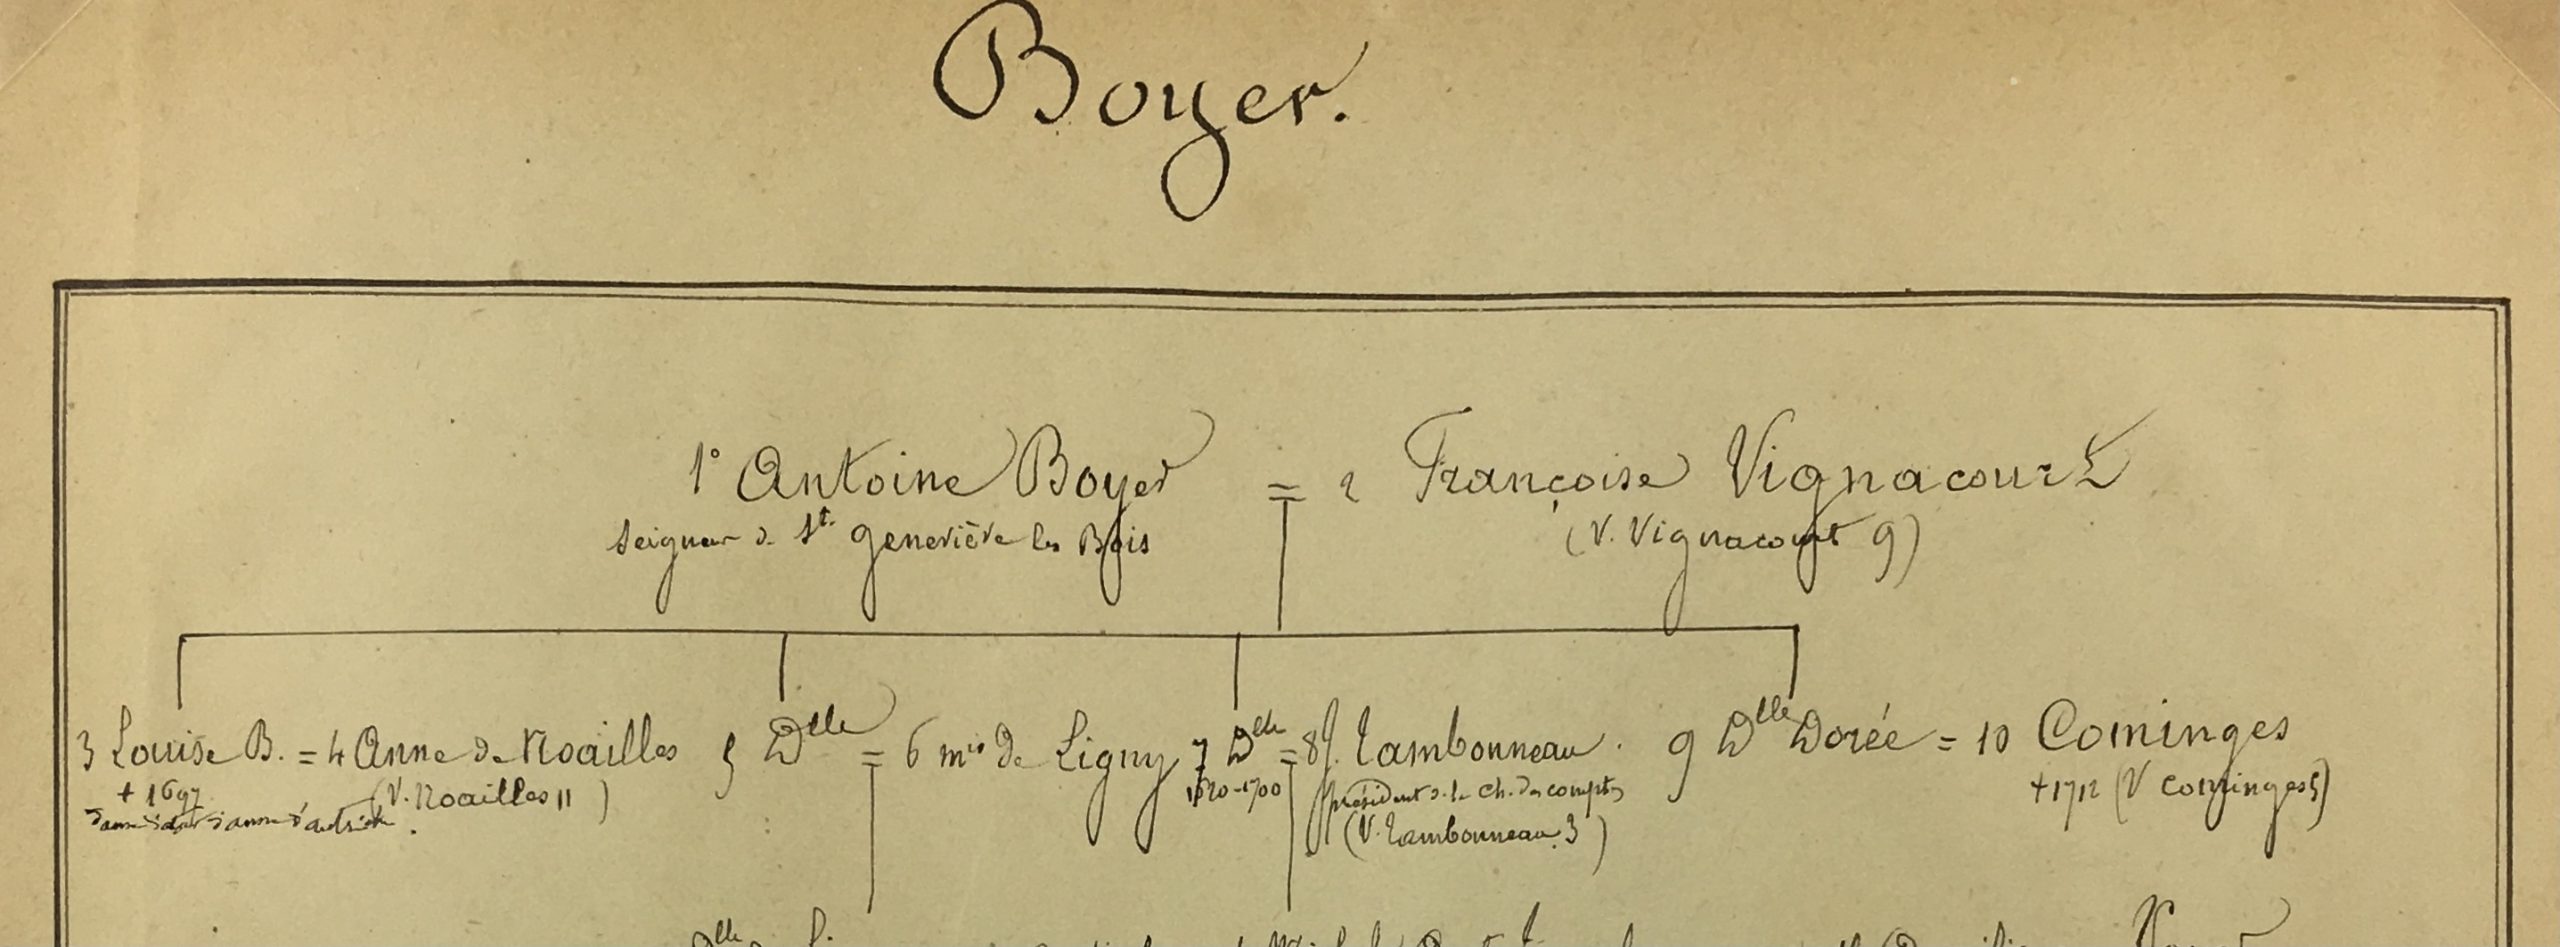 Boyer.
1° Antoine Boyer = 2 Françoise Vignacourt
Seigneur de Ste Geneviève les Bois (V. Vignacourt 9)
3 Louise B. = 4 Anne de Noailles 5 Dlle = 6 mis de Ligny 7 Dlle = 8 J. Tambonneau. 9 Dlle Dorée = 10 Cominges
+ 1697 (V. Noailles 11) 1620-1700 président de la Ch. des comptes +1712 (V Cominges 5)
dame d'atour d'anne d'autriche. (V. Tambonneau 3)